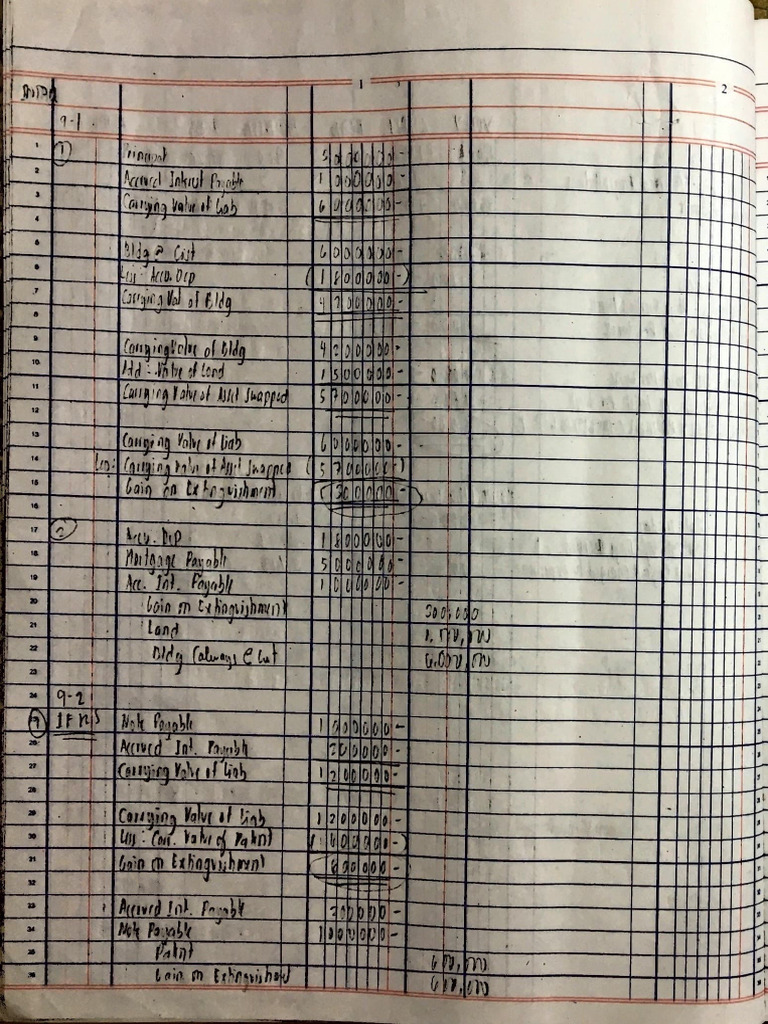 1
2
9-1
1 ① Principal 5 000000-
2 Accrued Interest Payable 1 000000-
3 Carrying Value of Liab 6 000000-
4
5 Bldg @ Cost 6 000000-
6 Less: Accu. Dep (1 800000-)
7 Carrying Val of Bldg 4 200000-
8
9 Carrying Value of Bldg 4 200000-
10 Add: Value of Land 1 500000-
11 Carrying Value of Asset Swapped 5 700000-
12
13 Carrying Value of Liab 6 000000-
14 Less: Carrying Value of Asset Swapped (5 700000-)
15 Gain on Extinguishment 300000-
16
17 ② Accu. Dep 1 800000-
18 Mortgage Payable 5 000000-
19 Acc. Int. Payable 1 000000-
20 Gain on Extinguishment 300,000
21 Land 1,500,000
22 Bldg (always @ cost 6,000,000
23
24 9-2
IFRS Note Payable 1 000000-
26 Accrued Int. Payable 200000-
27 Carrying Value of Liab 1 200000-
28
29 Carrying Value of Liab 1 200000-
30 Less: Carr. Value of Patent
31 Gain on Extinguishment
32
33 Accrued Int. Payable 200000-
34 Note Payable 1 000000-
35 Patent
36 Gain on Extinguishment